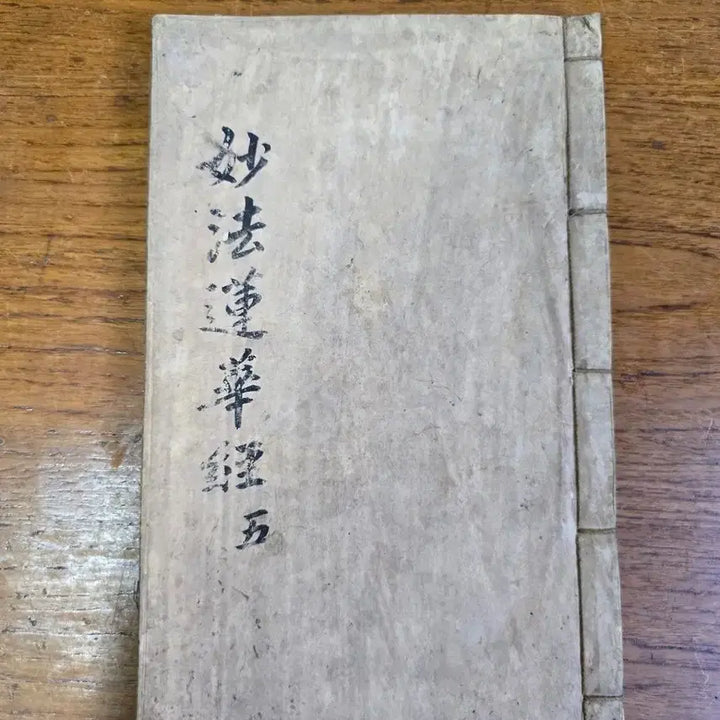 妙法蓮華經五